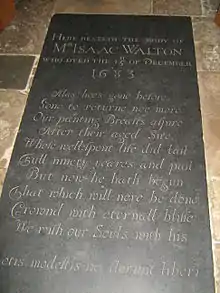 HERE RESTETH THE BODY OF
Mr ISAAC WALTON
WHO DYED THE 15 OF DECEMBER
1683
Alas hee's gone before
Gone to returne noe more
Our panting Breasts aspire
After their aged Sire
Whose wellspent life did last
Full ninety yeares and past
But now he hath begun
That which will nere be done
Crownd with eternall blisse
We wish our Souls with his
modestis sic flerunt liberi